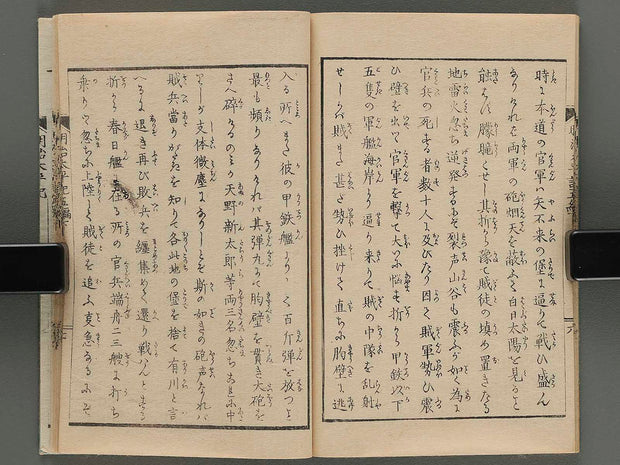 時に本道の官軍ハ矢不来の堡に逼りて戦ひ盛ん
ありけれを両軍の砲烟天を蔽ふて白日太陽を見ること
能はず朦朧くせし其折から豫て賊徒の填め置きたる
地雷火忽ち逆発するに裂声山谷も震ふが如く為に
官兵の死する者数十人に及びたり因て賊軍勢ひ震
ひ壁を出て官軍を撃て大ひに悩も折から甲鉄以下
五隻の軍艦海岸より逼り来りて賊の中隊を乱射
せしかバ賊ハまた甚ざ勢ひ挫けて直ちに胸壁に逃
入る所へまた彼の甲鉄艦より 百斤弾を放つよ
最も頻りありけれバ其弾丸にて胸壁を貫き大砲を
さへ砕くるのミか天野新太郎等両三名忽ちこれに中
て 支体微塵にありしことを斯の如きの砲声なれバ
賊兵當りがたきを知りて各此地の堡を捨て有川と言
へるに退き再び敗兵を纏集めて還り戦ハんと する
折から春日艦に在る所の官兵端舟二三艘に打ち
乗りて忽ちに上陸して賊徒を追ふ急あるにぞ
明治太平記